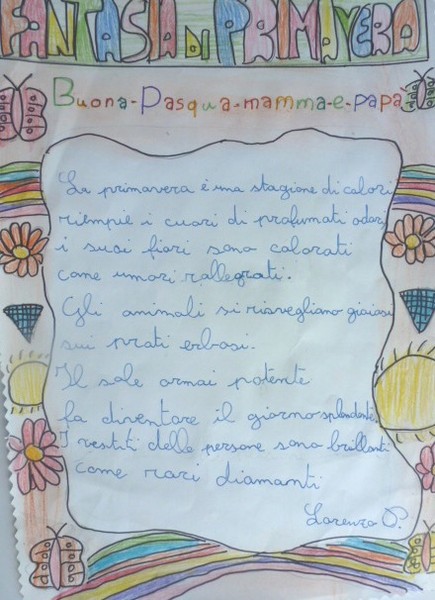 FANTASIA DI PRIMAVERA
Buona-Pasqua-mamma-e-papà
La primavera è una stagione di calori
riempie i cuori di profumati odori,
i suoi fiori sono colorati
come umori rallegrati.
Gli animali si risvegliano gioiosi
sui prati erbosi.
Il sole ormai potente
fa diventare il giorno splendente.
I vestiti delle persone sono brillanti
come rari diamanti
Lorenzo P.